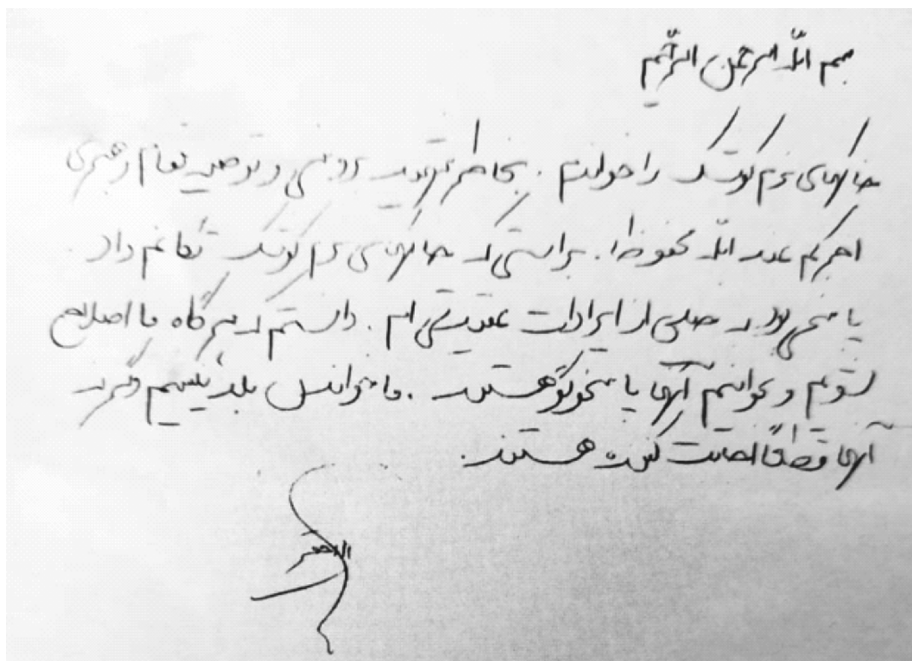 بسم الله الرحمن الرحیم
خاکهای نرم کوشک را خواندم. بخاطر تقوید و توصیه مقام رهبری
اجرکم عند الله محفوظ. براستی که خاکهای نرم کوشک تکانم داد
پاسخی بود به خیلی از ایرادات عقیدتی ام. دانستم که هرگاه ما اصلاح
شویم و بخوانیم آنها پاسخگو هستند. ما خواندن بلد نیستیم وگرنه
آنها قطعاً اجابت کننده هستند.